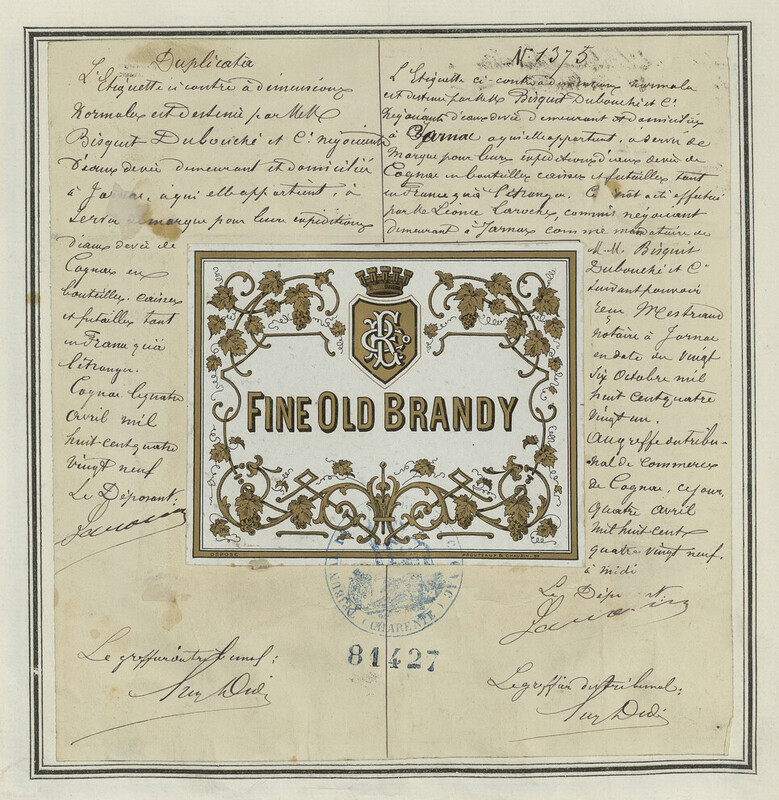 Duplicata
L'Etiquette ci contre à dimensions
Normales est destinée par MM
Bisquit Dubouché et Cie négociants
d'eaux de vie demeurant et domiciliés
à Jarnac, à qui elle appartient, à
servir de marque pour leurs expéditions
d'eaux de vie de
Cognac en
bouteilles, caisses
et futailles tant
en France qu'à
l'étranger.
Cognac le quatre
avril mil
huit cent quatre
vingt neuf
Le Déposant.
Le greffier du tribunal:
N. 1375
L'Etiquette ci-contre à dimensions normales
est destinée par MM. Bisquit Dubouché et Cie
Négociants d'eaux de vie demeurant et domiciliés
à Jarnac à qui elle appartient, à servir de
Marque pour leurs expéditions d'eaux de vie de
Cognac en bouteilles caisses et futailles tant
en France qu'à l'étranger. Ce dépôt a été effectué
par Mr Léonce Laroche, commis négociant
demeurant à Jarnac comme mandataire de
M.M. Bisquit
Dubouché et Cie
suivant pouvoir
reçu Mestreaud
notaire à Jarnac
en date du vingt
six Octobre mil
huit cent quatre
vingt un.
Au greffe du tribu-
nal de Commerce
de Cognac, ce jour,
quatre avril
mil huit cent
quatre vingt neuf.
à midi
Le Déposant
Le greffier du tribunal:
FINE OLD BRANDY
DÉPOSÉ
TRIBUNAL COGNAC (CHARENTE)
81427